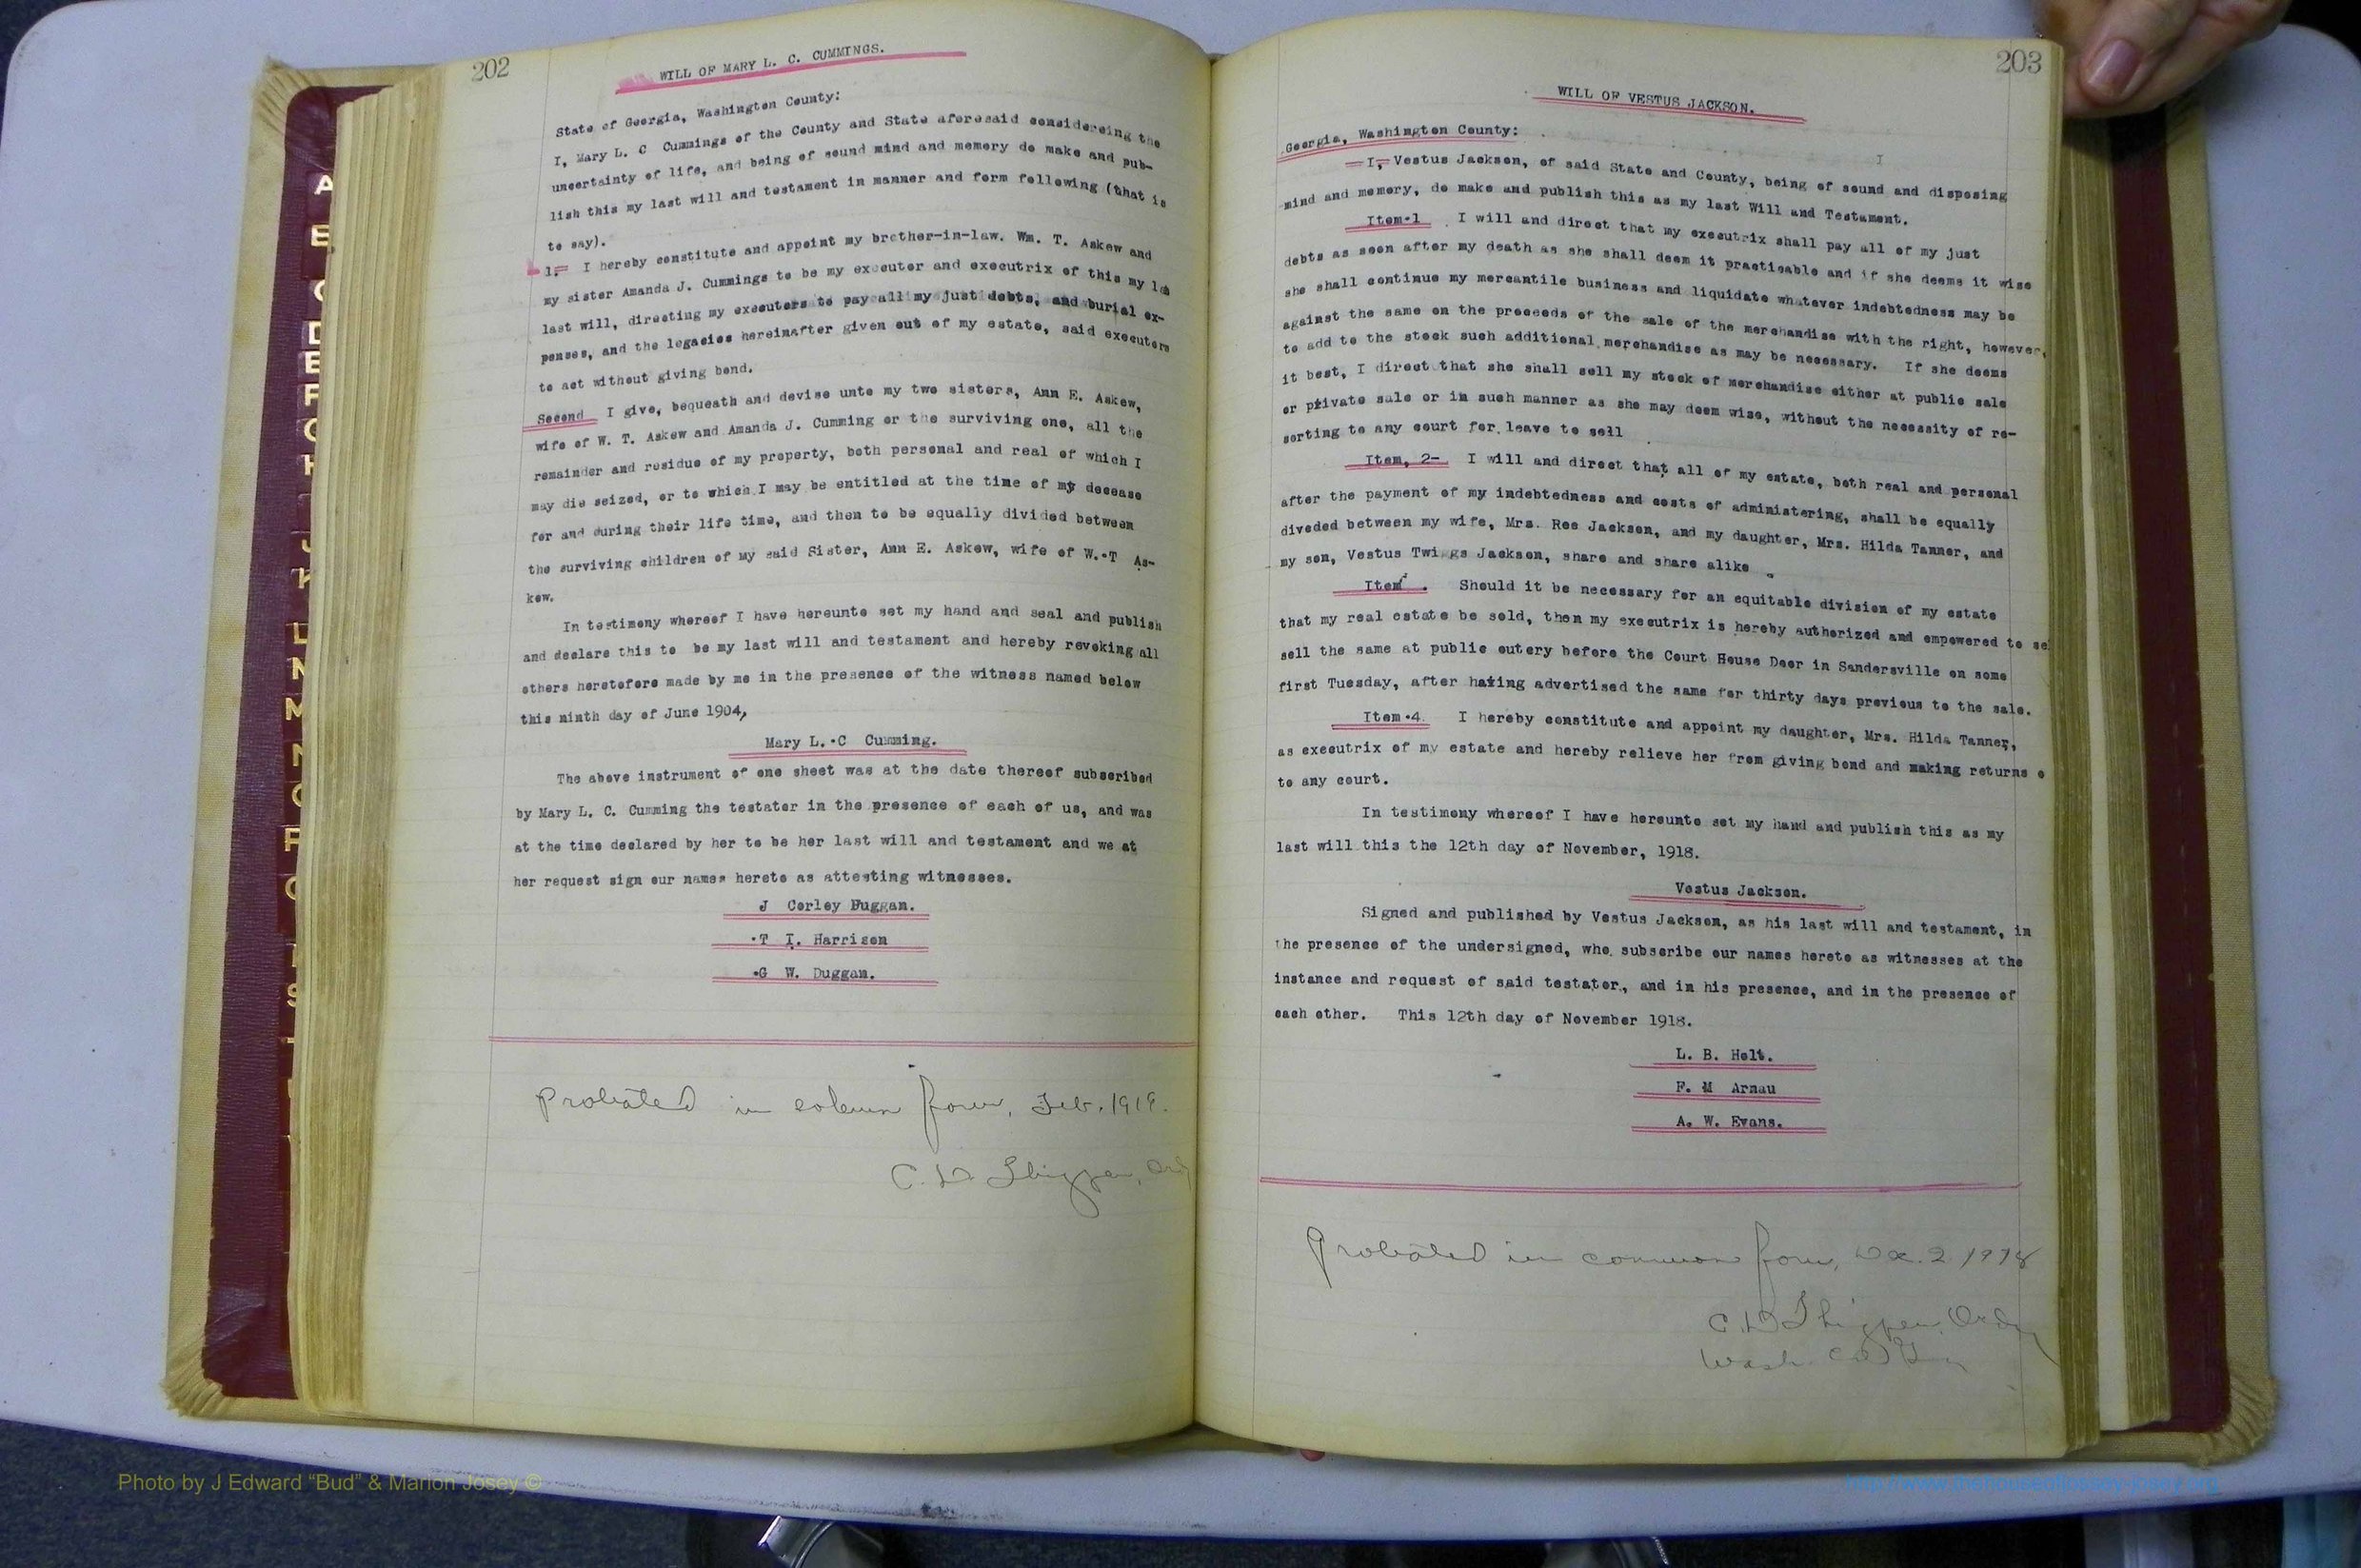 202
WILL OF MARY L. C. CUMMINGS.
State of Georgia, Washington County:
I, Mary L. C Cummings of the County and State aforesaid considereing the
uncertainty of life, and being of sound mind and memory do make and pub-
lish this my last will and testament in manner and form following (that is
to say).
1. I hereby constitute and appoint my brother-in-law. Wm. T. Askew and
my sister Amanda J. Cummings to be my executor and executrix of this my
last will, directing my executors to pay all my just debts, and burial ex-
penses, and the legacies hereinafter given out of my estate, said executors
to act without giving bond.
Second I give, bequeath and devise unto my two sisters, Ann E. Askew,
wife of W. T. Askew and Amanda J. Cumming or the surviving one, all the
remainder and residue of my property, both personal and real of which I
may die seized, or to which I may be entitled at the time of my decease
for and during their life time, and then to be equally divided between
the surviving children of my said Sister, Ann E. Askew, wife of W. T As-
kew.
In testimony whereof I have hereunto set my hand and seal and publish
and declare this to be my last will and testament and hereby revoking all
others heretofore made by me in the presence of the witness named below
this ninth day of June 1904,
Mary L. C Cumming.
The above instrument of one sheet was at the date thereof subscribed
by Mary L. C. Cumming the testator in the presence of each of us, and was
at the time declared by her to be her last will and testament and we at
her request sign our names hereto as attesting witnesses.
J Corley Duggan.
T I. Harrison
G W. Duggan.
Probated in solemn form, Feb. 1919.
C. D. Thigpen, Ordy
203
WILL OF VESTUS JACKSON.
Georgia, Washington County:
I, Vestus Jackson, of said State and County, being of sound and disposing
mind and memory, do make and publish this as my last Will and Testament.
Item 1 I will and direct that my executrix shall pay all of my just
debts as soon after my death as she shall deem it practicable and if she deems it wise
she shall continue my mercantile business and liquidate whatever indebtedness may be
against the same on the proceeds of the sale of the merchandise with the right, however,
to add to the stock such additional merchandise as may be necessary. If she deems
it best, I direct that she shall sell my stock of merchandise either at public sale
or private sale or in such manner as she may deem wise, without the necessity of re-
sorting to any court for leave to sell
Item, 2- I will and direct that all of my estate, both real and personal
after the payment of my indebtedness and costs of administering, shall be equally
diveded between my wife, Mrs. Ree Jackson, and my daughter, Mrs. Hilda Tanner, and
my son, Vestus Twiggs Jackson, share and share alike
Item . Should it be necessary for an equitable division of my estate
that my real estate be sold, then my executrix is hereby authorized and empowered to se
sell the same at public outery before the Court House Door in Sandersville on some
first Tuesday, after having advertised the same for thirty days previous to the sale.
Item 4 I hereby constitute and appoint my daughter, Mrs. Hilda Tanner,
as executrix of my estate and hereby relieve her from giving bond and making returns
to any court.
In testimony whereof I have hereunto set my hand and publish this as my
last will this the 12th day of November, 1918.
Vestus Jackson.
Signed and published by Vestus Jackson, as his last will and testament, in
the presence of the undersigned, who subscribe our names hereto as witnesses at the
instance and request of said testator, and in his presence, and in the presence of
each other. This 12th day of November 1918.
L. B. Holt.
F. M Arnau
A. W. Evans.
Probated in common form, Dec. 2 1918
C. D Thigpen, Ordy
Wash Co Ga
Photo by J Edward “Bud” & Marion Josey ©
http://www.thehouseofjossey-josey.org